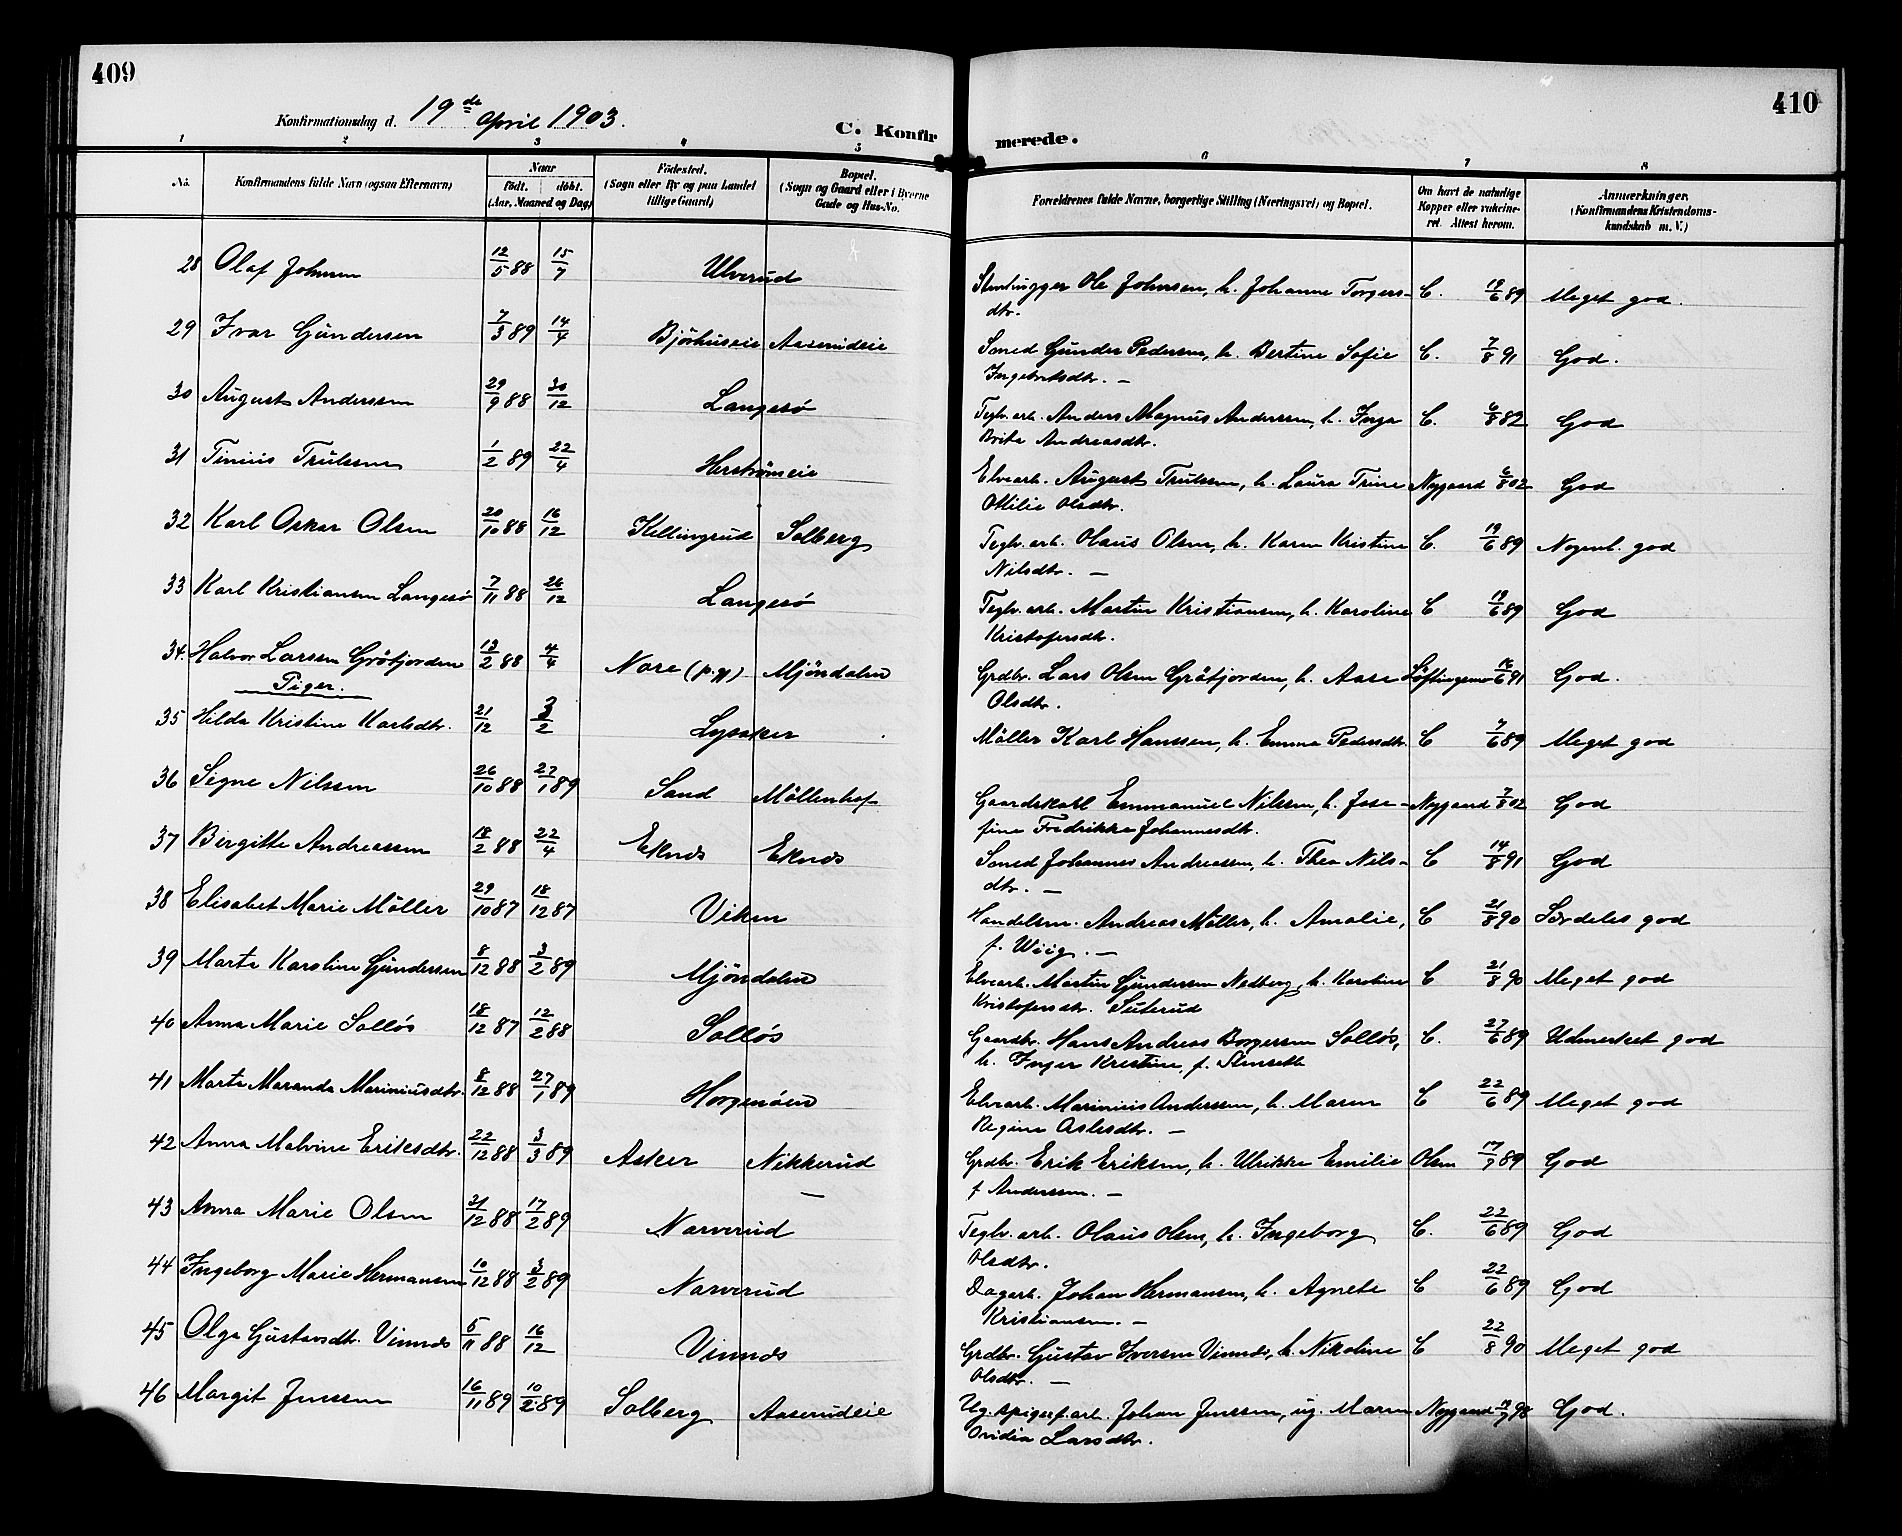 409
410
Konfirmationsdag d. 19de April 1903.
C. Konfirmerede.
1 2 3 4 5 6 7 8
No.
Konfirmandens fulde Navn (ogsaa Efternavn)
Naar
født. døbt.
(Aar, Maaned og Dag)
Fødested.
(Sogn eller By og paa Landet
tillige Gaard)
Bopæl.
(Sogn og Gaard eller i Byerne
Gade og Hus-No.
Forældrenes fulde Navne, borgerlige Stilling (Næringsvei) og Bopæl.
Om havt de naturlige
Kopper eller vakcine-
ret. Attest herom.
Anmærkninger.
(Konfirmandens Kristendoms-
kundskab m. V.)
28 Olaf Johnsen 12/5 88 15/7 Ulverud Ole Johnsen, h. Johanne Torgers- C. 19/6 89 Meget god.
dtr.
29 Ivar Gundersen 7/3 89 14/4 Bjørhuseie Aaserudeie Smed Gunder Pedersen, h. Bertine Sofie C. 7/8 91 God.
Ingebretsdtr. —
30 August Anderssen 29/9 88 30/12 Langesø Teglv. arb. Anders Magnus Anderssen, h. Inga C. God
Brita Andreasdtr.
31 Tinius Trulssen 1/2 89 22/4 Herstrømeie Elvearb. August Trulssen, h. Laura Trine Nygaard 6/8 02 God
Otilie Olsdtr.
32 Karl Oskar Olsen 20/10 88 16/12 Killingrud Solberg Teglv. arb. Olaus Olsen, h. Karen Kristine C. 19/6 89 Nogenl. god
Nilsdtr. —
33 Karl Kristiansen Langesø 7/11 88 26/12 Langesø Teglv. arb. Martin Kristiansen, h. Karoline C 19/6 89 God
Kristofersdtr.
34. Halvor Larssen Grøtjorden 13/2 88 4/4 Nore (p.gj) Mjøndalen Grdbr. Lars Olsen Grøtjorden, h. Aase 16/6 91 God.
Olsdtr.
Piger.
35 Hilda Kristine Karlsdtr. 21/12 3/2 Lysaker Møller Karl Hanssen, h. Emma Pedersdtr. C 7/6 89 Meget god
36 Signe Nilssen 26/10 88 27/1 89 Sand Møllenhof Gaardskarl Emmanuel Nilssen, h. Jose- Nygaard 7/8 02 God
fine Fredrikke Johannesdtr.
37 Birgitte Andreassen 18/2 88 22/4 Eknes Eknes Smed Johannes Andreassen, h. Thea Nils- C 14/8 91 God
dtr. —
38 Elisabet Marie Møller 29/10 87 18/12 87 Viken Handelsm. Andreas Møller, h. Amalie, C 21/8 90 Særdeles god
f. Wiig. —
39 Marta Karoline Gundersen 8/12 88 3/2 89 Mjøndalen Elvearb. Martin Gundersen Nedberg, h. Karoline C 21/8 90 Meget god
Kristofersdtr. Suterud
40 Anna Marie Solløs 18/12 87 12/2 88 Solløs Gaardbr. Hans Andreas Borgersen Solløs, C. 27/6 89 Udmerket god
h. Inger Kristine, f. Stenseth
41 Marta Maranda Mariniusdtr. 8/12 88 27/1 89 Horgenøen Elvearb. Marinius Anderssen, h. Maren C 22/6 89 Meget god
Regine Aslesdtr. —
42 Anna Malvine Eriksdtr. 22/12 88 3/3 89 Asker Nikkerud Grdbr. Erik Eriksen, h. Ulrikke Emilie Olsen 17/9 89 God
f Anderssen. —
43 Anna Marie Olsen 31/12 88 17/2 89 Narverud Teglv. arb. Olaus Olsen, h. Ingeborg C. 22/6 89 God
Olsdtr.
44 Ingeborg Marie Hermansen 10/12 88 3/2 89 Narverud Dagarb. Johan Hermansen, h. Agnete C 22/6 89 God
Kristiansen. —
45 Olga Gustavsdtr. Vinnes 5/11 88 16/12 Vinnes Grdbr. Gustav Iversen Vinnes, h. Nikoline C 22/8 90 Meget god
Olsdtr. —
46 Margit Jenssen 16/11 89 10/2 89 Solberg Aaserudeie Ug. spigerf.arb. Johan Jenssen, ug. Maren Nygaard God.
Ovidia Larsdtr.